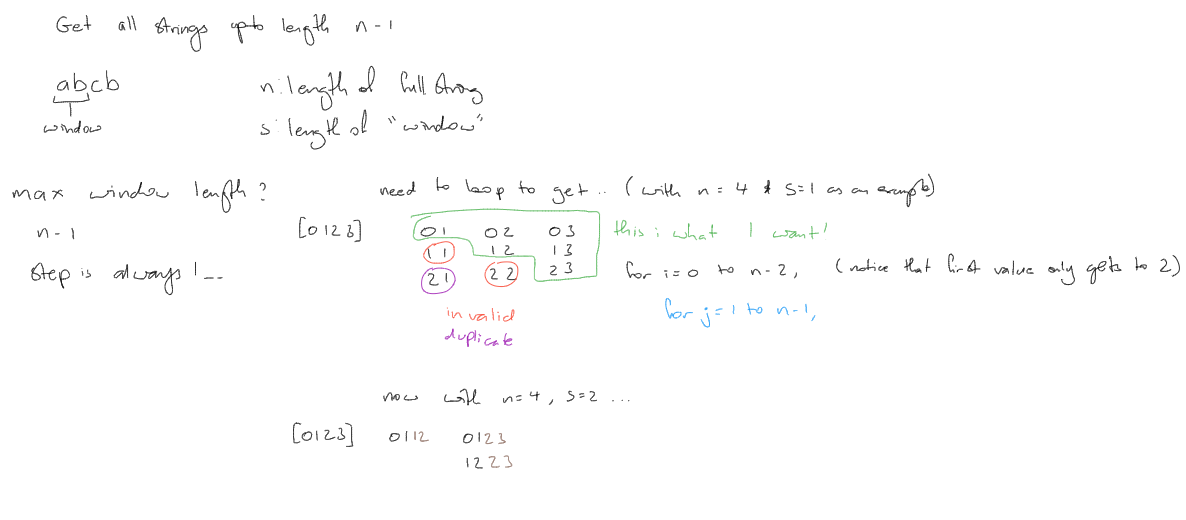 Get all strings upto length n-1
abcb
window
n: length of full string
s: length of "window"
max window length?
n-1
step is always 1...
need to loop to get .. (with n=4 & s=1 as an example)
[0123]
01 02 03
11 12 13
21 22 23
this i what I want!
invalid
duplicate
for i=0 to n-2, (notice that first value only gets to 2)
for j=1 to n-1,
now with n=4, s=2 ...
[0123] 0112 0123
1223